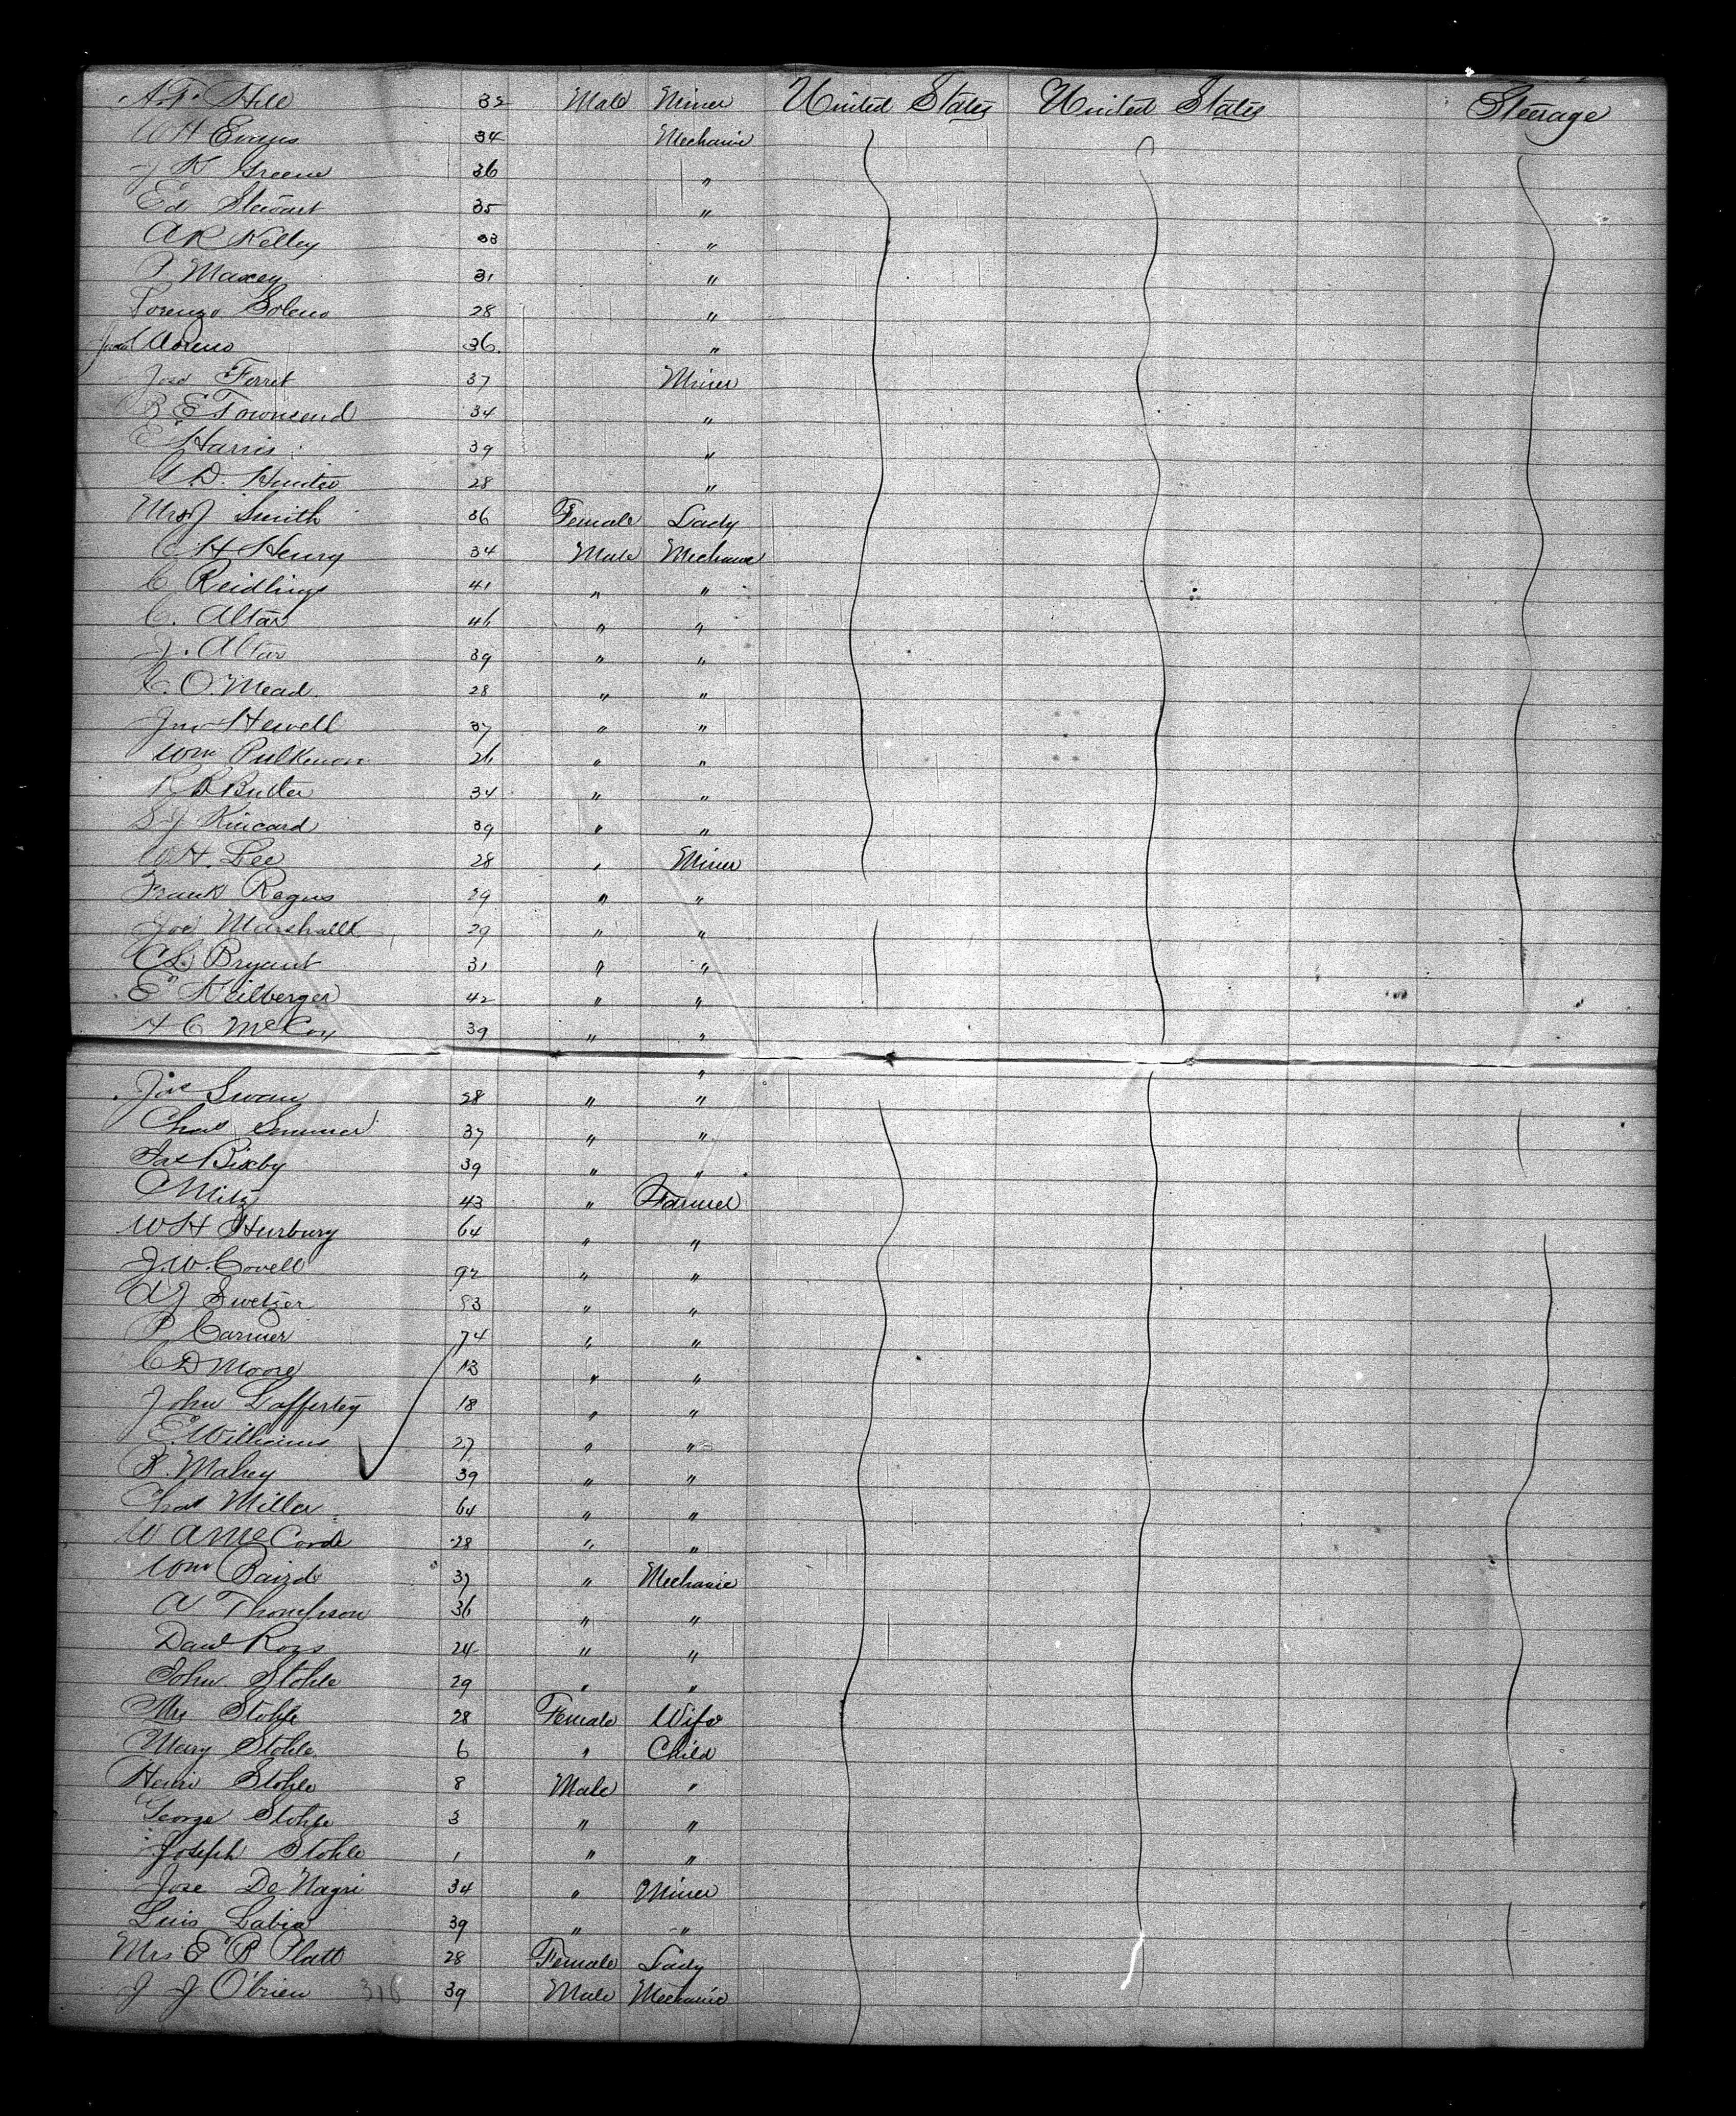 A. T. Hill 32 Male Miner United States United States Steerage
W H Evans 34 Mechanic
J K Greene 36 "
Ed Stewart 35 "
A R Kelley 33 "
P. Maxey 31 "
Lorenzo Soleno 28 "
Moreno 36. "
José Ferret 37 Miner
R E Townsend 34 "
E Harris 39 "
D. Hunter 28 "
Mrs J Smith 36 Female Lady
C H Henry 34 Male Mechanic
C Reidling 41 " "
C. Altar 46 " "
J. Altar 39 " "
C. O. Mead 28 " "
Jno Hewell 37 " "
Wm 26 " "
R R Butler 34 " "
S J Kincard 39 " "
W H. Lee 28 " Miner
Frank Ragus 29 " "
Joe Marshall 29 " "
C L Bryant 31 " "
E Keilberger 42 " "
H C McCoy 39 " "
"
Jas Swan 28 " "
Chas Summer 37 " "
Jas Bixby 39 " "
C Miltz 43 " Farmer
W H Hurbury 64 " "
J. W. Covell 92 " "
A J Swetzer 53 " "
P Carmer 74 " "
C D Moore 13 " "
John Lafferty 18 " "
E. Williams 27 " "
R. Mahey 39 " "
Chas Miller 64 " "
W A McCorde 28 " "
Wm Baird 37 " Mechanic
A Thompson 36 " "
Danl Ross 24 " "
John Stohle 29 " "
Mrs Stohle 28 Female Wife
Mary Stohle 6 " Child
Henri Stohle 8 Male "
George Stohle 3 " "
Joseph Stohle 1 " "
Jose De Nagri 34 " Miner
Luis Labia 39 " "
Mrs E R Platt 28 Female Lady
J J O'brien 318 39 Male Mechanic